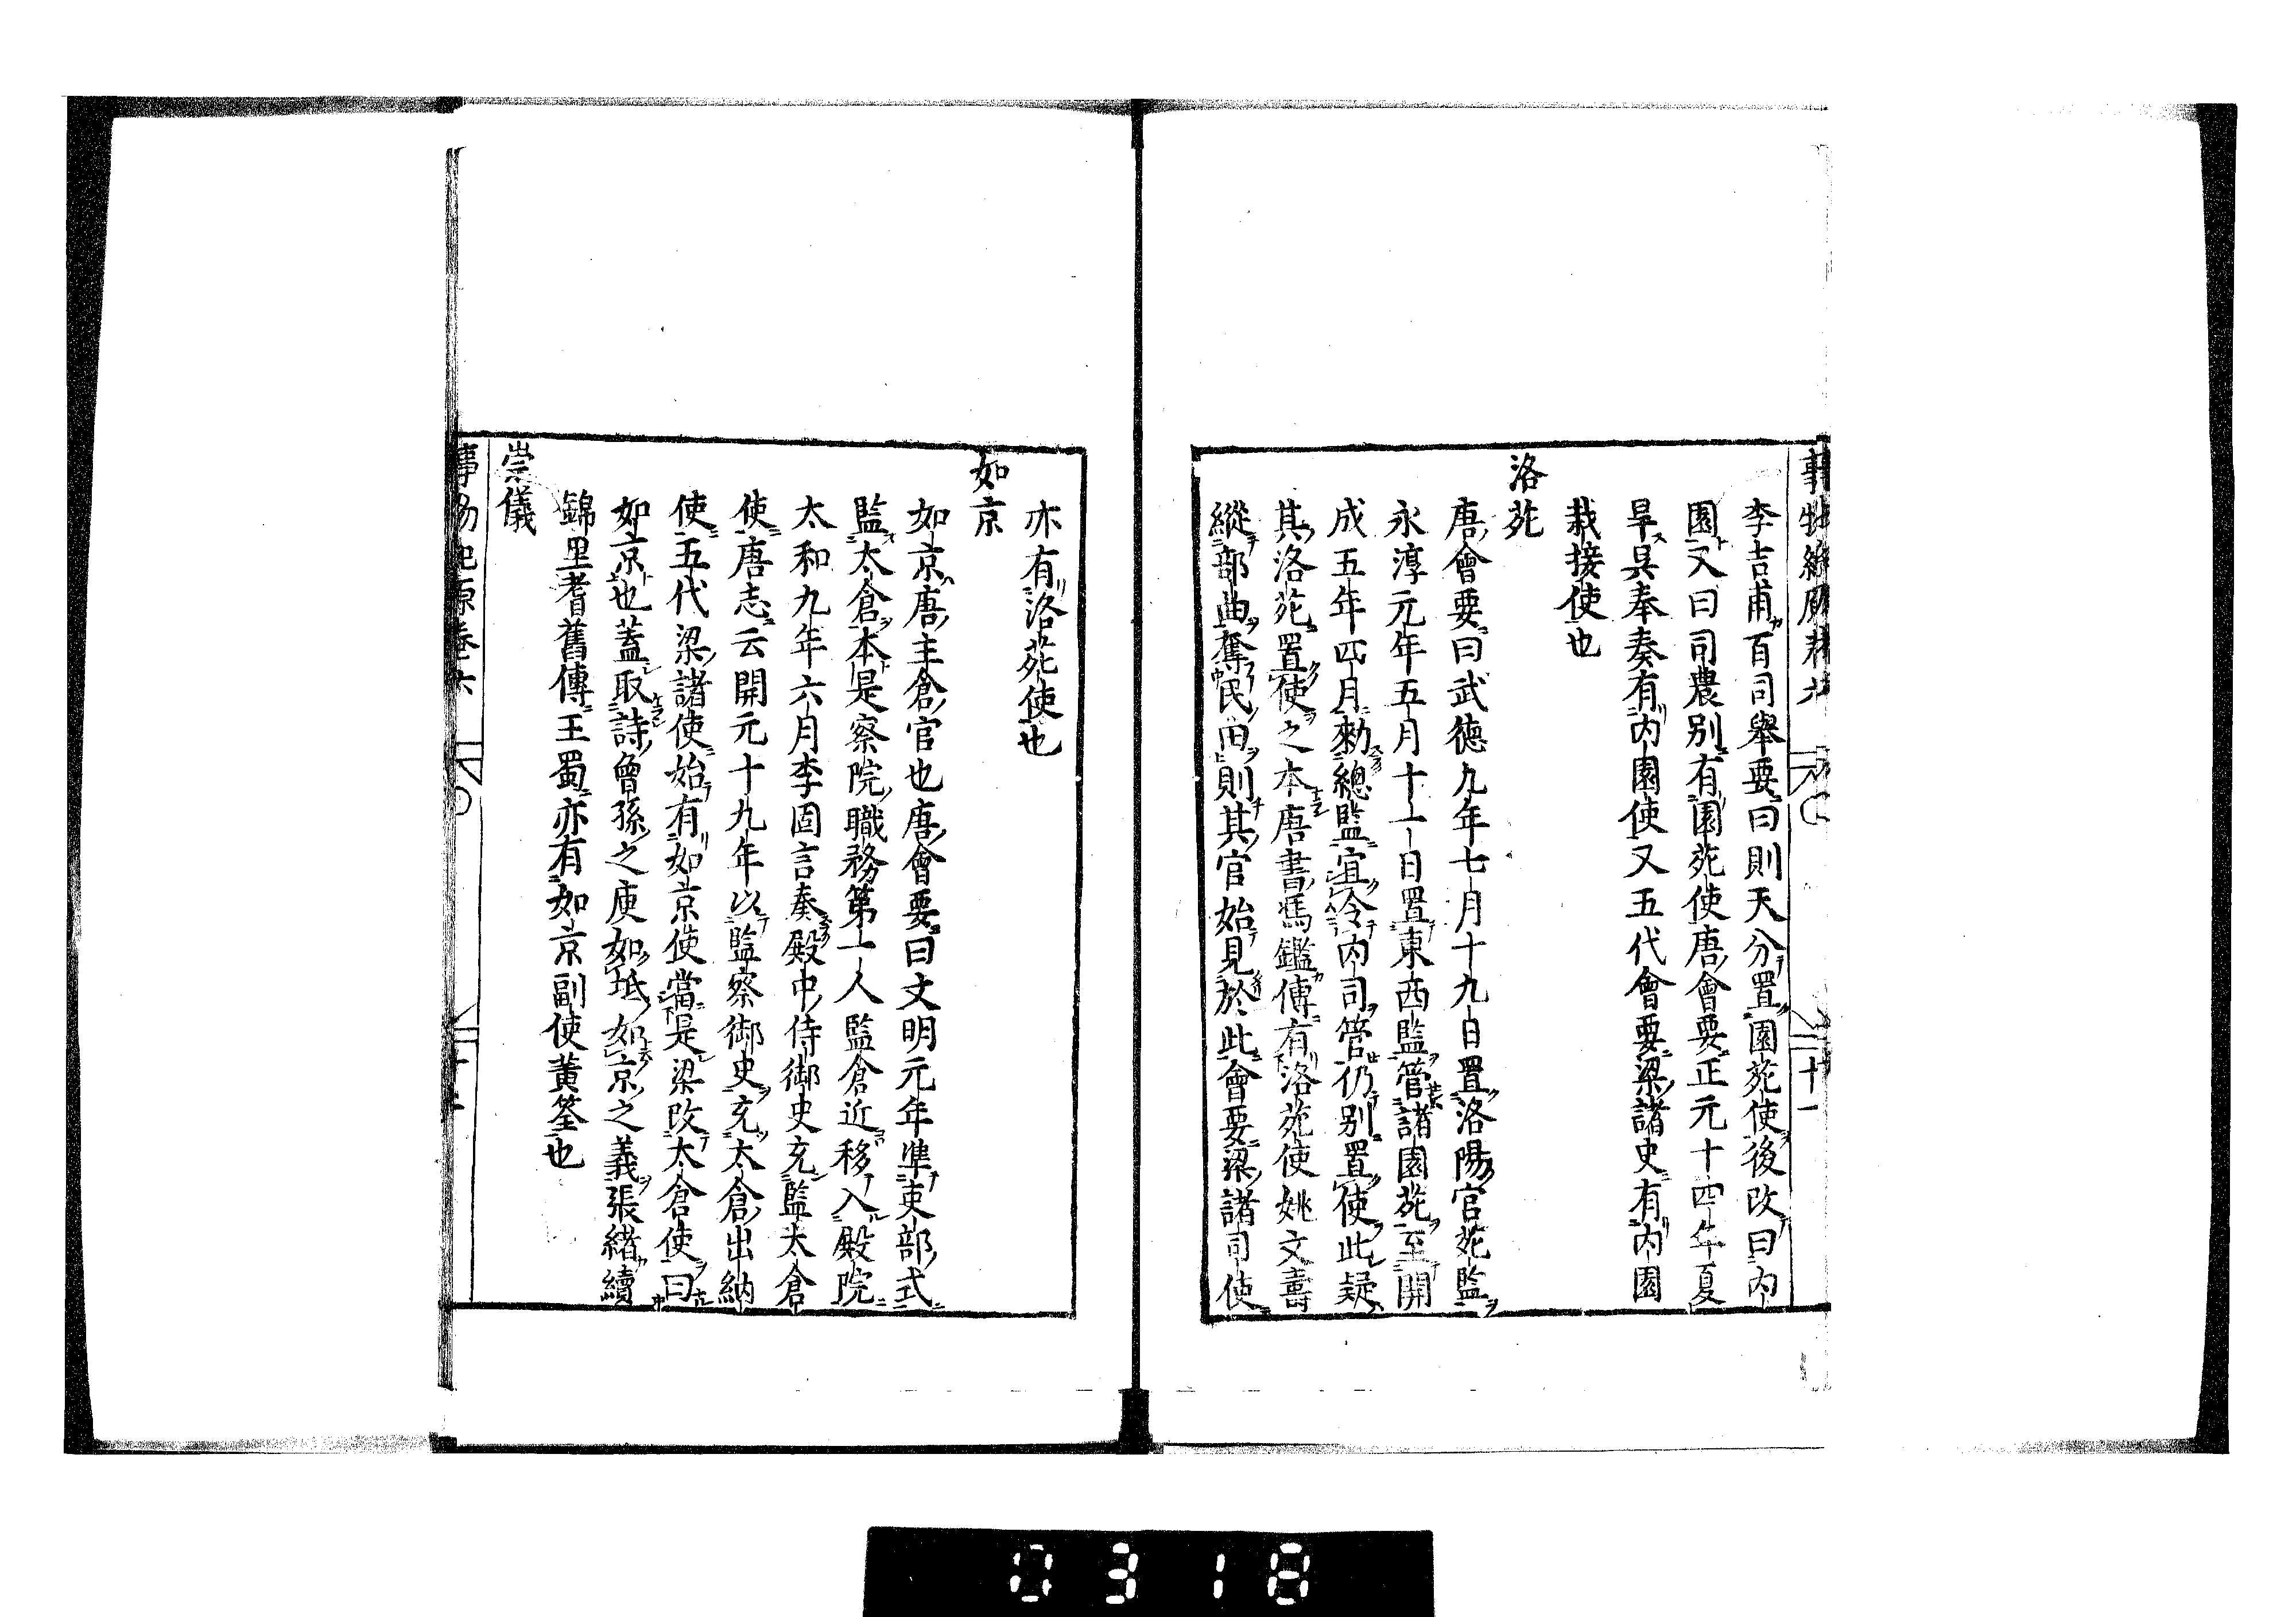 李吉甫百司舉要曰則天分置園苑使後改曰内
園又曰司農别有園苑使唐會要正元十四年夏
旱吳奉奏有内園使又五代會要梁諸史有内園
栽接使也
洛苑
唐會要曰武德九年七月十九日置洛陽宫苑監
永淳元年五月十一日置東西監管諸園苑至開
成五年四月勑總監宜令内司管仍别置使此疑
其洛苑置使之本唐書馮鑑傳有洛苑使姚文壽
縱部曲奪民田則其官始見於此會要梁諸司使
亦有洛苑使也
如京
如京唐主倉官也唐會要曰文明元年準吏部式
監太倉本是察院職務第一人監倉近移入殿院
太和九年六月李固言奏殿中侍御史充監太倉
使唐志云開元十九年以監察御史充太倉出納
使五代梁諸使始有如京使當是梁改太倉使曰
如京也蓋取詩曾孫之庾如坻如京之義張緒續
錦里耆舊傳王蜀亦有如京副使黄筌也
崇儀
事物紀原卷六
0318